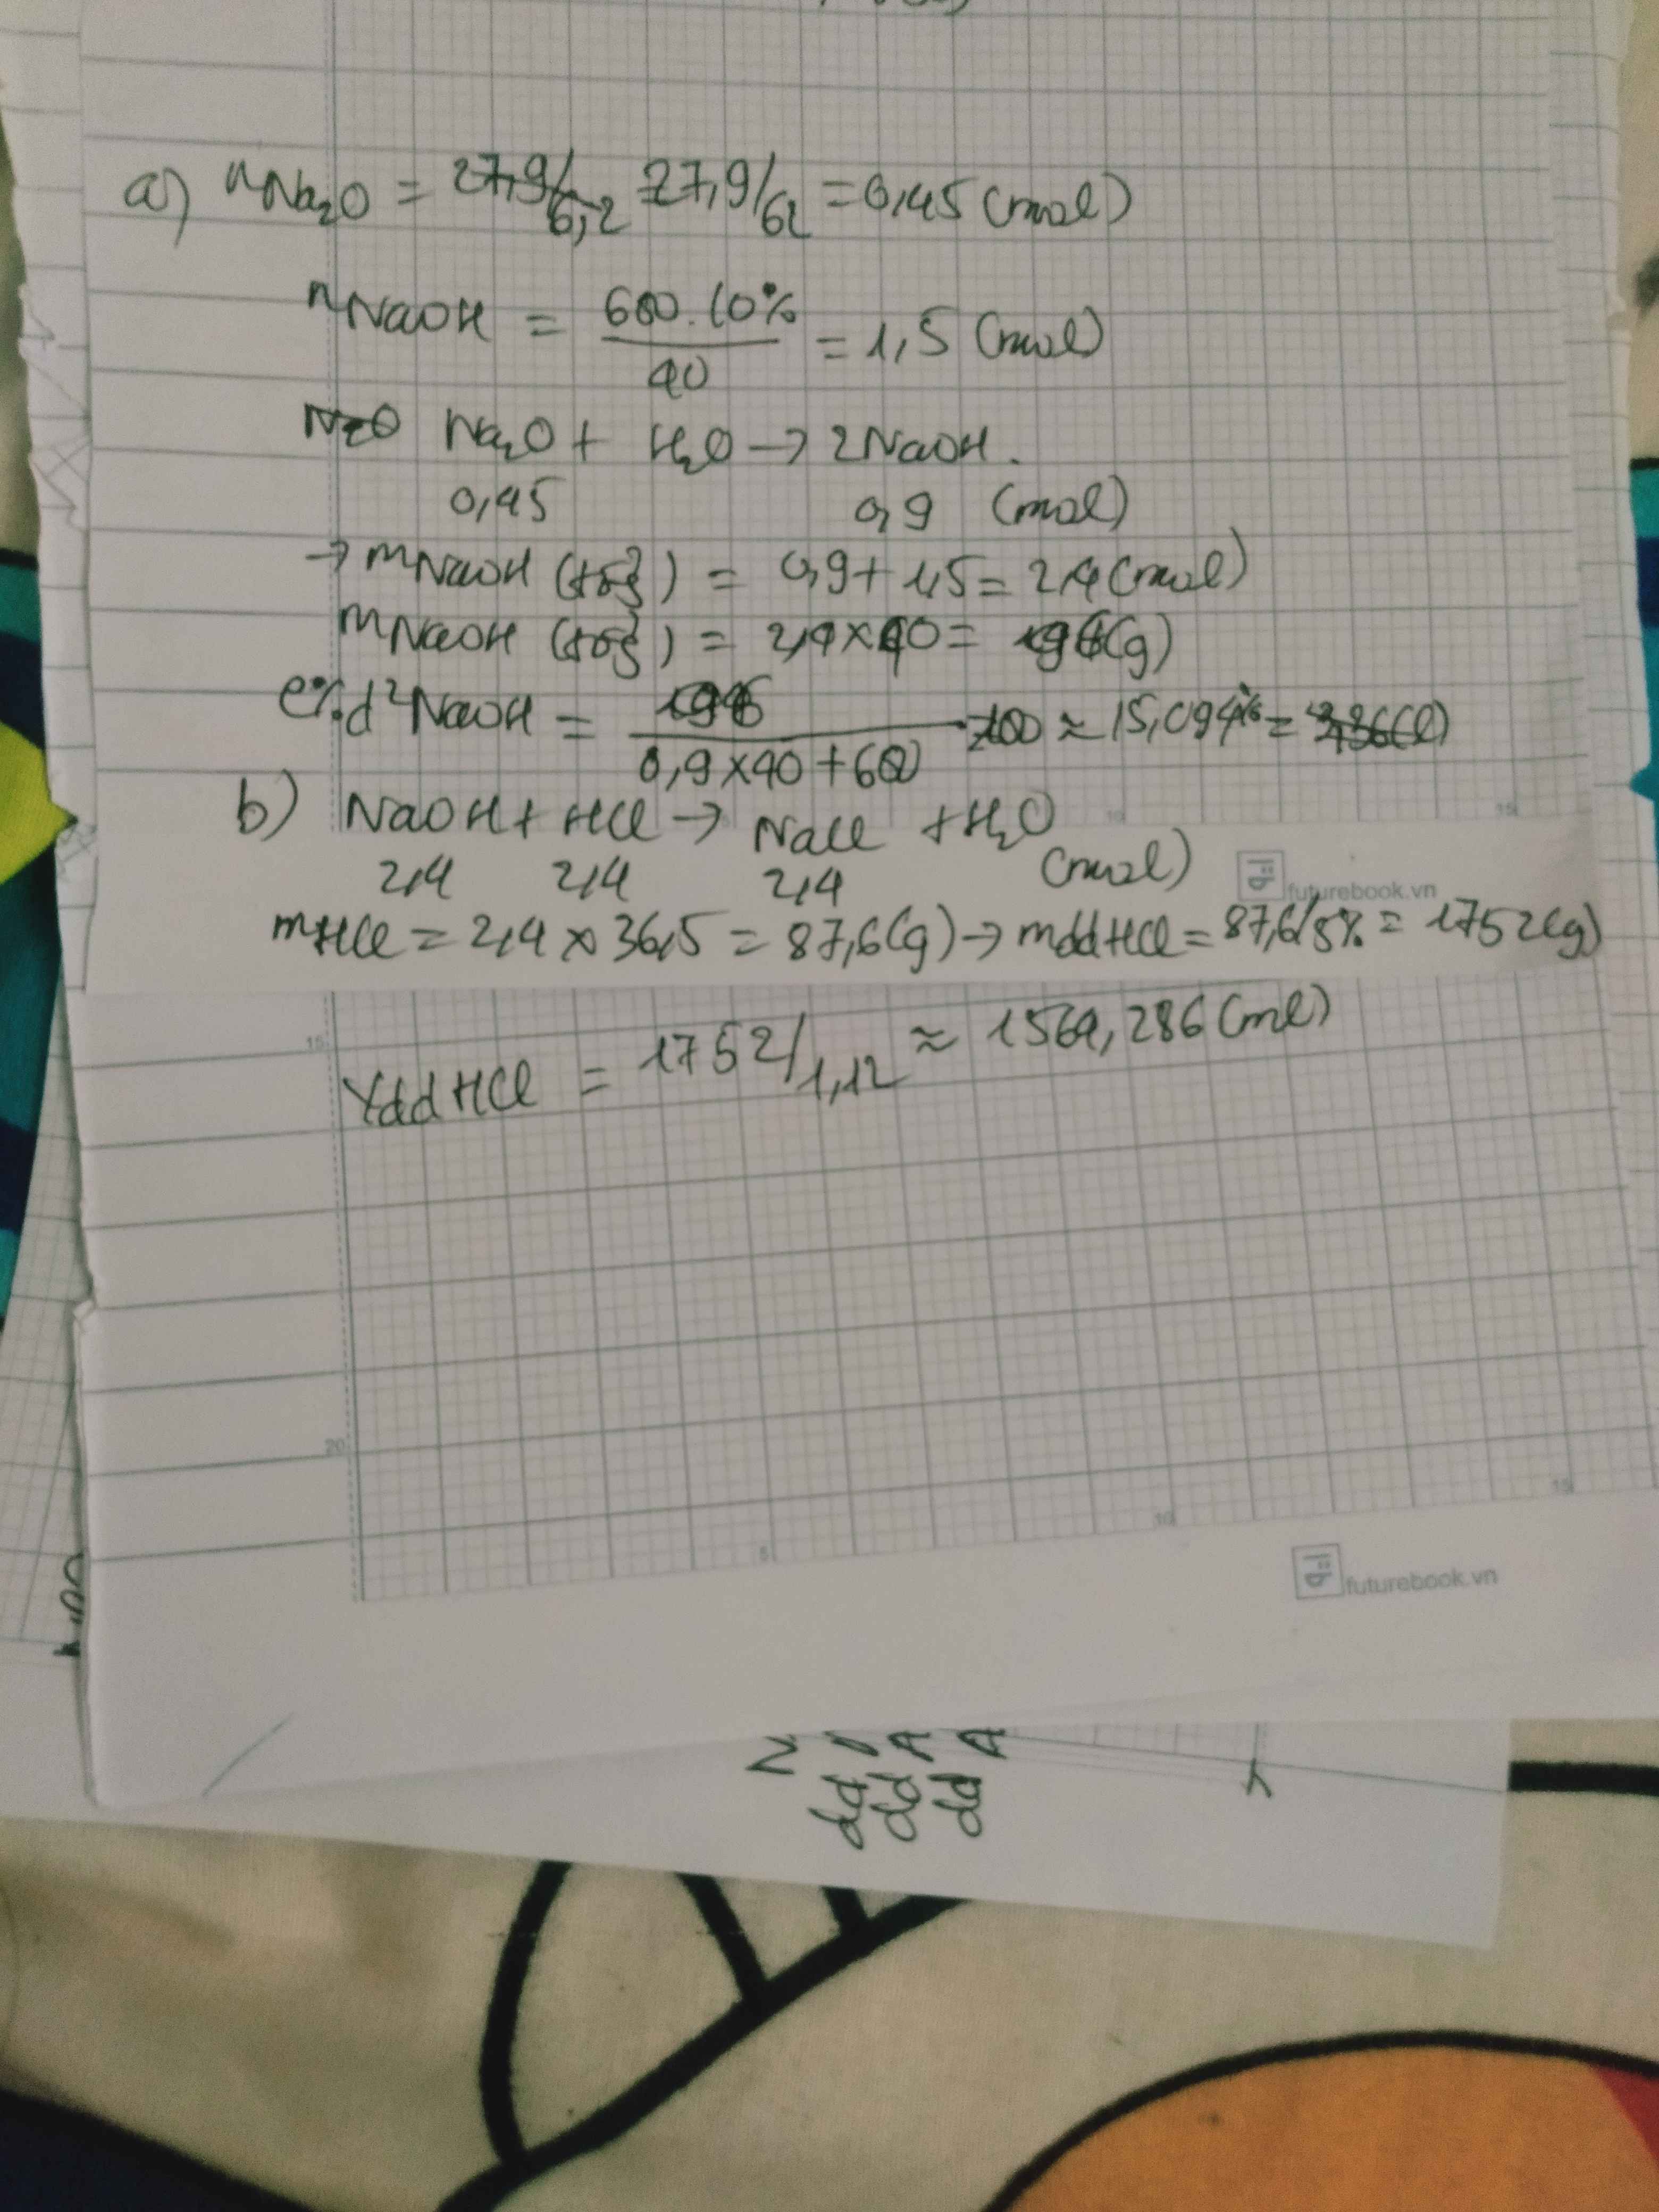 a) nNa₂O = 27,9/6,2 27,9/62 = 0,45 (mol)
nNaOH = 600.10% / 40 = 1,5 (mol)
N₂O Na₂O + H₂O → 2NaOH.
0,45 0,9 (mol)
→ mNaOH (tổng) = 0,9 + 1,5 = 2,4 (mol)
mNaOH (tổng) = 2,4 × 40 = 96 (g)
C% d² NaOH = 96 / 0,9×40 + 600 .100 ≈ 15,094% =
b) NaOH + HCl → NaCl + H₂O
2,4 2,4 2,4 (mol)
futurebook.vn
mHCl = 2,4 × 36,5 = 87,6 (g) → mddHCl = 87,6/5% = 1752 (g)
15
VddHCl = 1752/1,12 ≈ 1564,286 (ml)
20
5 10 15
futurebook.vn
dd dd dd